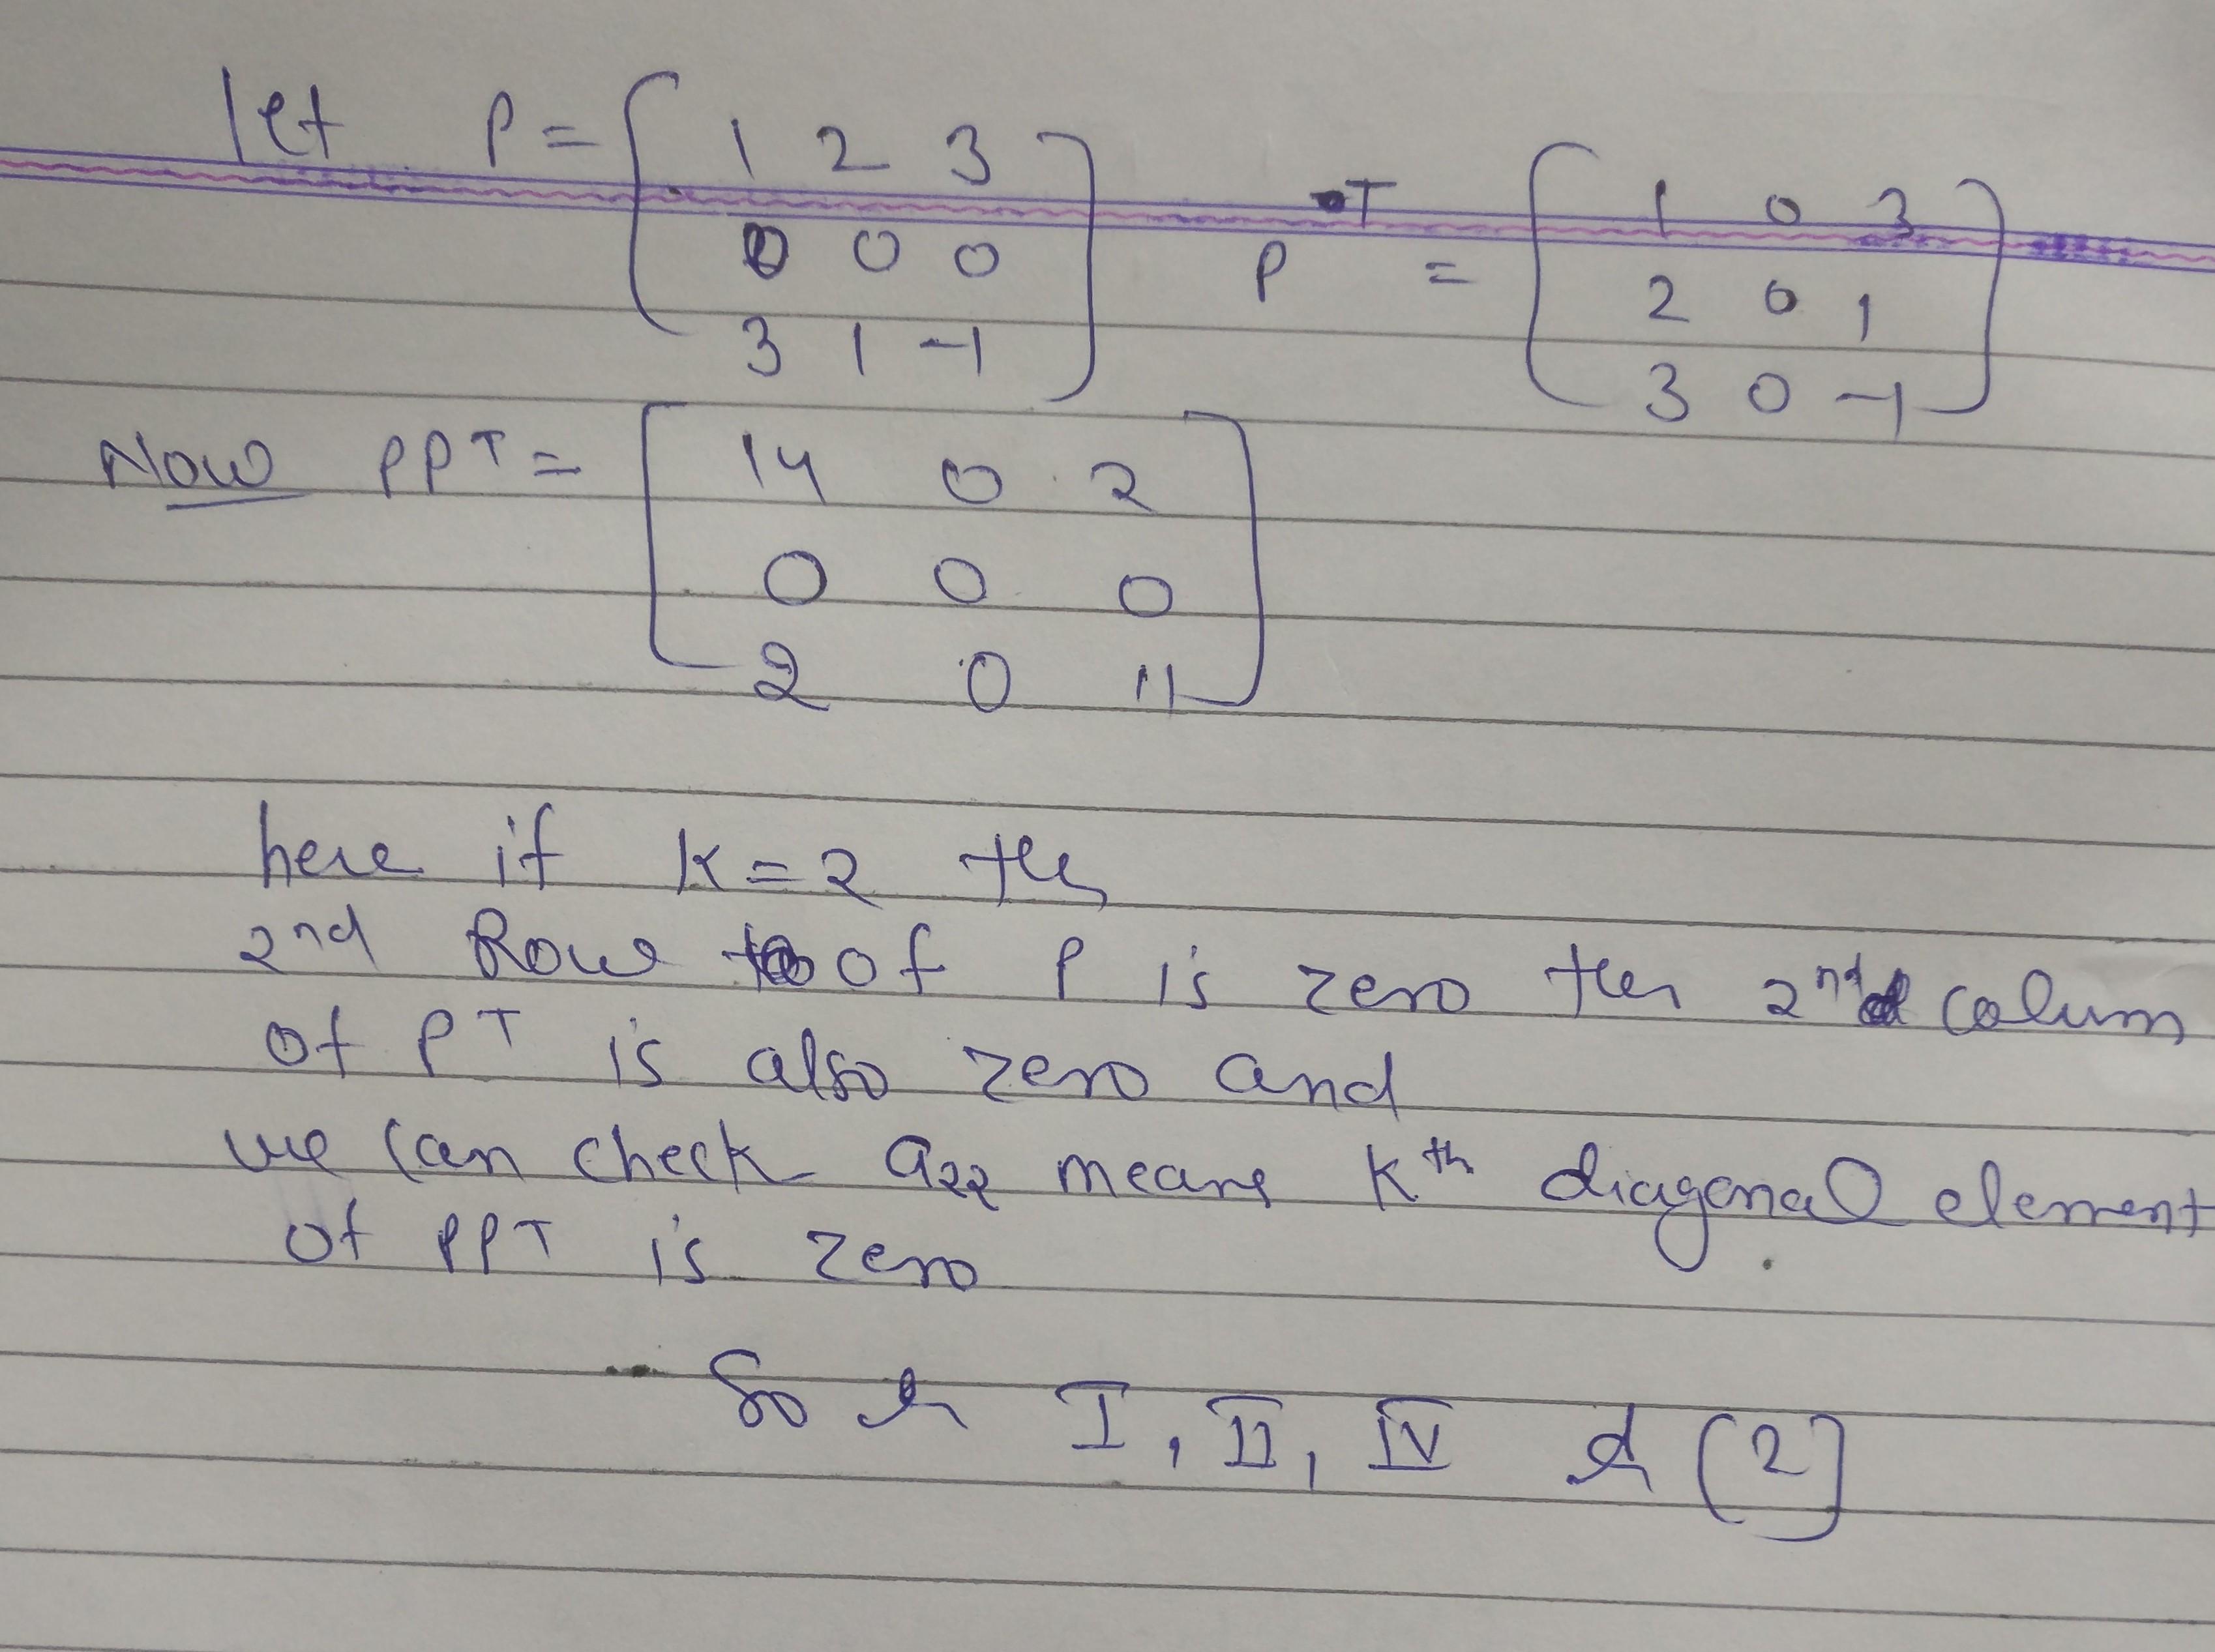 let P = [ 1 2 3
0 0 0
3 1 -1 ]
P^T = [ 1 0 3
2 0 1
3 0 -1 ]
Now PPT = [ 14 0 2
0 0 0
2 0 11 ]
here if K=2 the
2nd Row of P is zero then 2nd colum
of PT is also zero and
we can check a22 means Kth diagonal element
of PPT is zero
So I, II, IV (2)